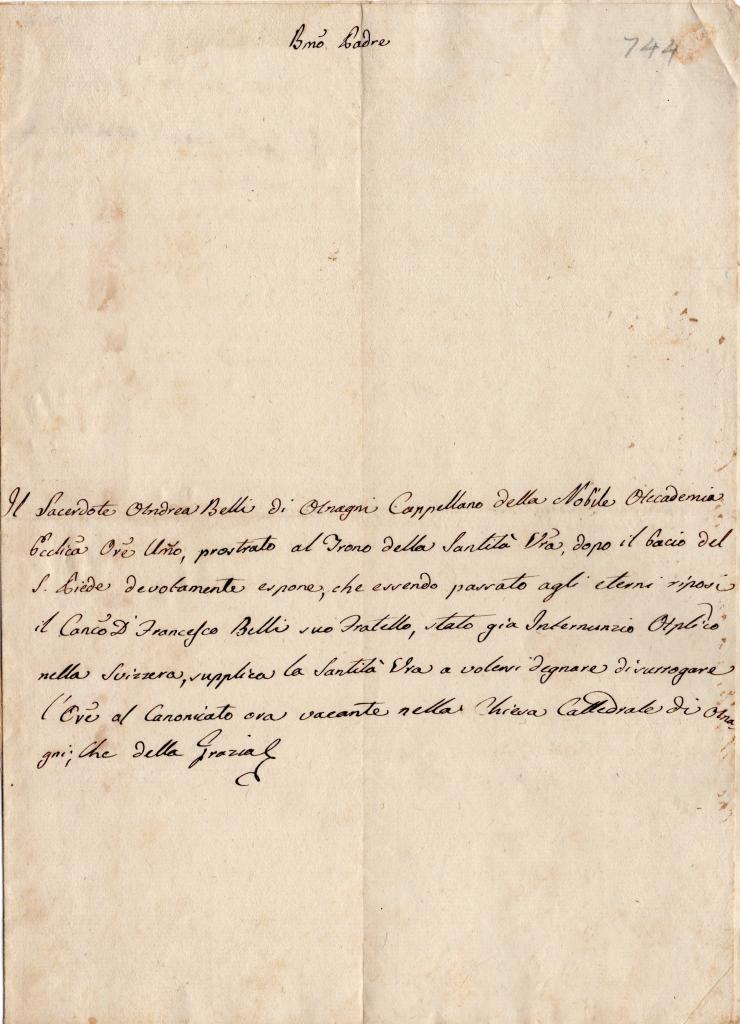 Bm̃o Padre
744
Il Sacerdote Andrea Belli di Anagni Cappellano della Nobile Accademia
Ecclica Orẽ Um̃o, prostrato al Trono della Santità Vrã, dopo il bacio del
S. Piede devotamente espone, che essendo passato agli eterni riposi
il Canco D. Francesco Belli suo Fratello, stato già Internunzio Aplico
nella Svizzera, supplica la Santità Vrã a volersi degnare di surrogare
l'Orẽ al Canonicato ora vacante nella Chiesa Cattedrale di Ana-
gni; Che della Grazia